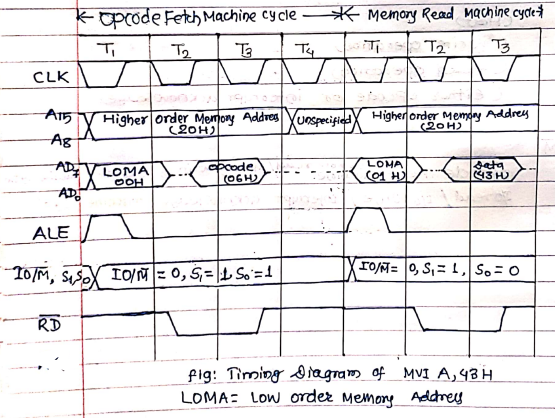 Opcode Fetch Machine cycle Memory Read Machine cycle
T1 T2 T3 T4 T1 T2 T3
CLK
A15 Higher order Memory Address Unspecified Higher order Memory Address
(20H) (20H)
A8
AD7 LOMA opcode LOMA Data
00H (06H) (01 H) (43H)
AD0
ALE
IO/M̅, S1, S0 IO/M̅ = 0, S1 = 1, S0 = 1 IO/M̅ = 0, S1 = 1, S0 = 0
R̅D̅
fig: Timing Diagram of MVI A, 43H
LOMA = Low order Memory Address